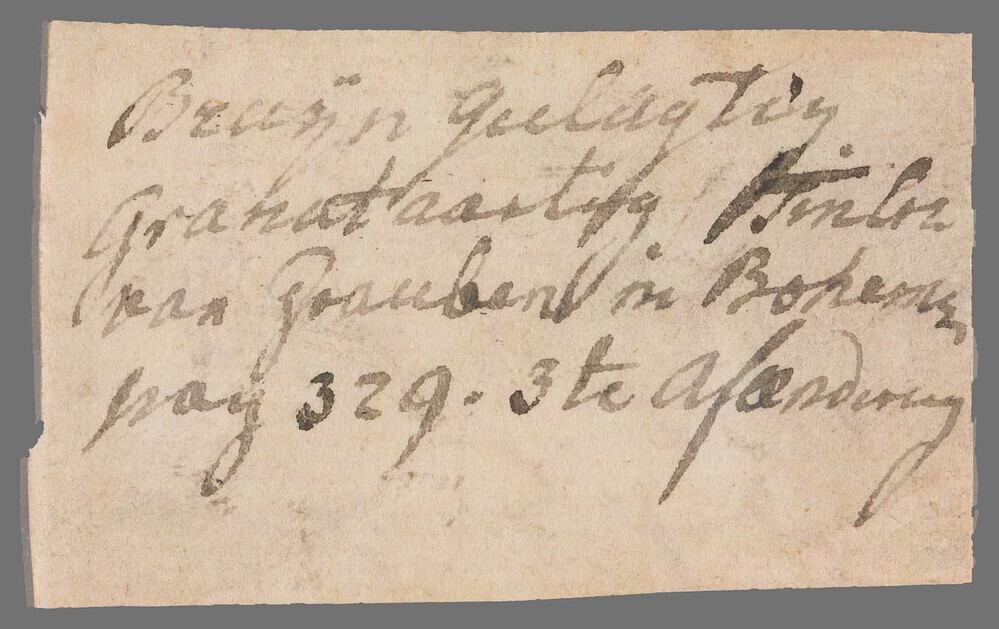 Bruÿn Geelagtig
Granataartig Tinlou
van Graubens in Bohemen
pag 329. 3te Afsendung